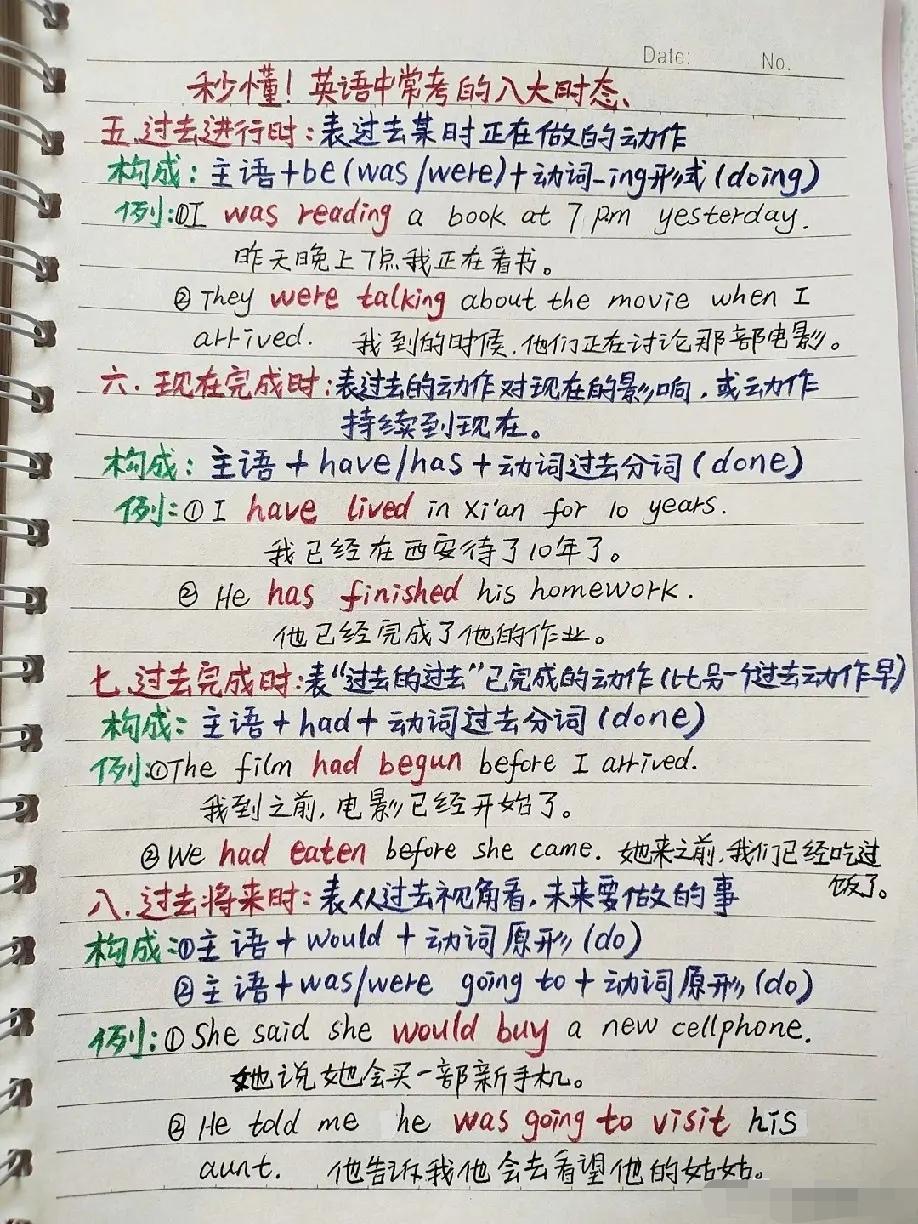 Date: No.
秒懂！英语中常考的八大时态、
五.过去进行时：表过去某时正在做的动作
构成：主语+be(was/were)+动词-ing形式(doing)
例：①I was reading a book at 7 pm yesterday.
昨天晚上7点我正在看书。
② They were talking about the movie when I
arrived. 我到的时候,他们正在讨论那部电影。
六.现在完成时：表过去的动作对现在的影响,或动作
持续到现在。
构成：主语+have/has+动词过去分词(done)
例：① I have lived in Xi'an for 10 years.
我已经在西安待了10年了。
② He has finished his homework.
他已经完成了他的作业。
七.过去完成时：表“过去的过去”已完成的动作(比另一个过去动作早)
构成：主语+had+动词过去分词(done)
例：①The film had begun before I arrived.
我到之前,电影已经开始了。
②We had eaten before she came. 她来之前,我们已经吃过
饭了。
八.过去将来时：表从过去视角看,未来要做的事
构成：①主语+would+动词原形(do)
②主语+was/were going to+动词原形(do)
例：①She said she would buy a new cellphone.
她说她会买一部新手机。
② He told me he was going to visit his
aunt. 他告诉我他会去看望他的姑姑。